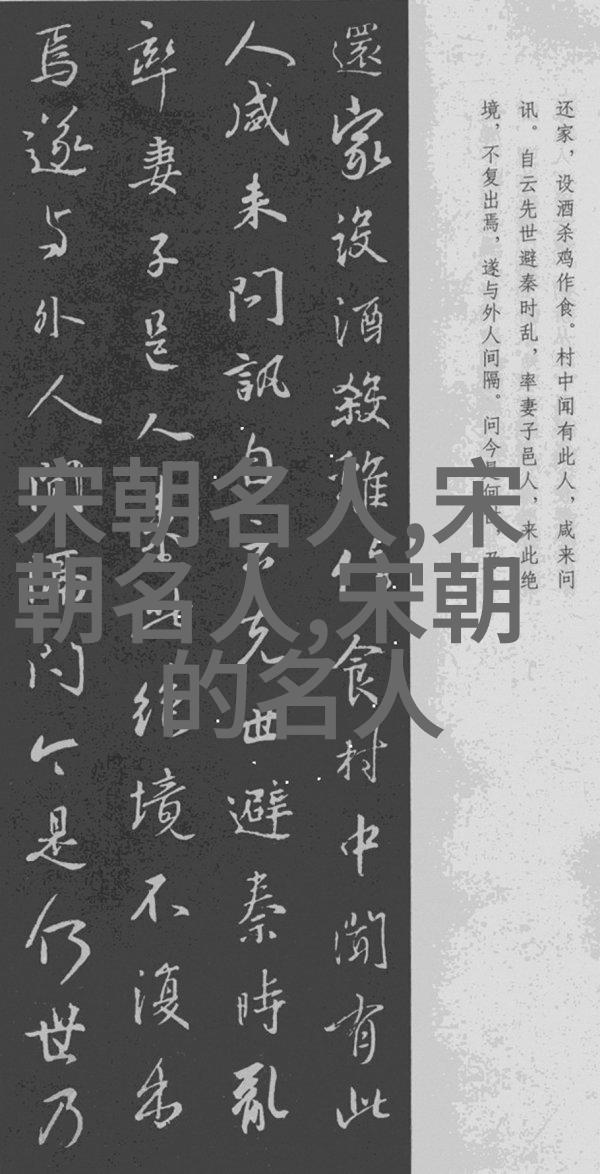 还家，设酒杀鸡作食。村中闻有此人，咸来问
讯。自云先世避秦时乱，率妻子邑人，来此绝
境，不复出焉，遂与外人间隔。问今是何世，乃
還家設酒殺雞作食村中聞有此
人咸来問訊自云先世避秦時亂
率妻子邑人来此絶境不復出
焉遂与外人間隔問今是何世乃
宋朝名人,宋
朝名人,宋朝
的名人